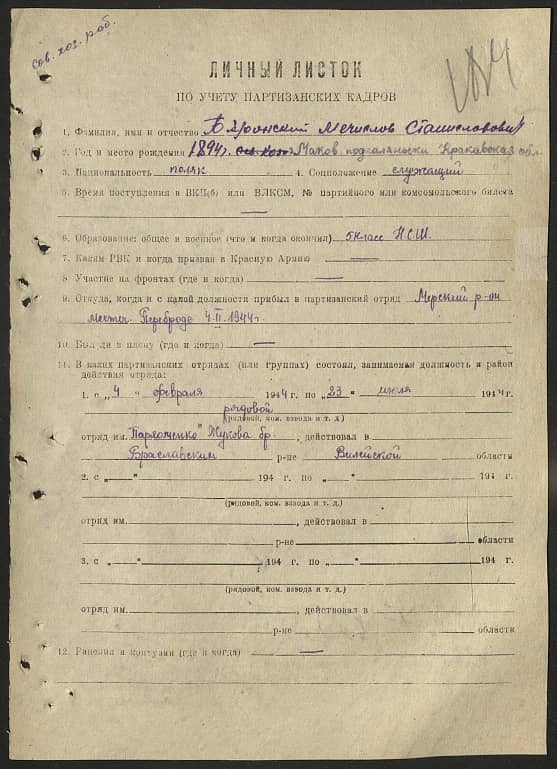 Сов. хоз. раб.
ЛИЧНЫЙ ЛИСТОК
ПО УЧЕТУ ПАРТИЗАНСКИХ КАДРОВ
1. Фамилия, имя и отчество Мечислов Станиславович
2. Год и место рождения 1894г. Маков
3. Национальность поляк 4. Соцположение служащий
5. Время поступления в ВКП(б) или ВЛКСМ, № партийного или комсомольского билета
—
6. Образование: общее и военное (что и когда окончил) 5 класс НСШ.
7. Каким РВК и когда призван в Красную Армию —
8. Участие на фронтах (где и когда) —
9. Откуда, когда и с какой должности прибыл в партизанский отряд Мерский р-он
местеч. Переброде 4.II.1944г.
10. Был ли в плену (где и когда) —
11. В каких партизанских отрядах (или группах) состоял, занимаемая должность и район
действия отряда:
1. с „4“ февраля 1944 г. по „23“ июля 1944 г.
рядовой
(рядовой, ком. взвода и т. д.)
отряд им. Пархоменко" Жукова бр., действовал в
Браславским р-не Вилейской области
2. с „—“ 194 г. по „—“ 194 г.
(рядовой, ком. взвода и т. д.)
отряд им. , действовал в
р-не области
3. с „—“ 194 г. по „—“ 194 г.
(рядовой, ком. взвода и т. д.)
отряд им. , действовал в
р-не области
12. Ранения и контузии (где и когда) —